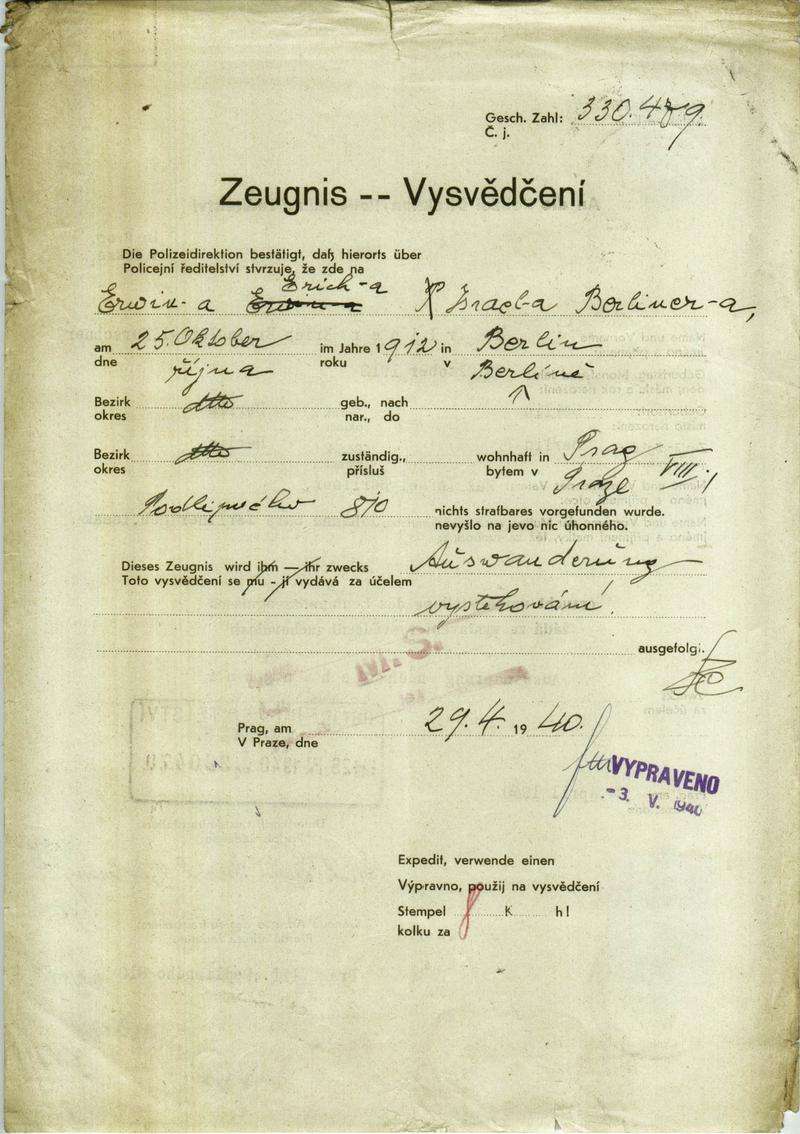 Gesch. Zahl: 330.489.
Č. j.
Zeugnis -- Vysvědčení
Die Polizeidirektion bestätigt, daß hierorts über
Policejní ředitelství stvrzuje, že zde na
Erich-a
Erwin-a Israel-a Berliner-a,
am 25. Oktober im Jahre 1912 in Berlin
dne října roku v Berlíně
Bezirk dtto geb., nach
okres nar., do
Bezirk dtto zuständig., wohnhaft in Prag VIII.,
okres přísluš bytem v Praze
Podlipného 810 nichts strafbares vorgefunden wurde.
nevyšlo na jevo nic úhonného.
Dieses Zeugnis wird ihm — ihr zwecks Auswanderung
Toto vysvědčení se mu - jí vydává za účelem
vystěhování,
ausgefolgt.
M. S.
Prag, am 29.4. 1940.
V Praze, dne
VYPRAVENO
-3. V. 1940
Expedit, verwende einen
Výpravno, použij na vysvědčení
Stempel K h!
kolku za